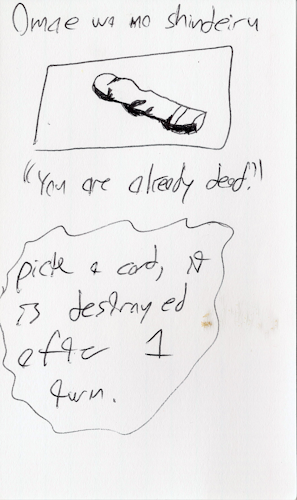 Omae wa mo shindeiru
"You are already dead."
pick a card, it
is destroyed
after 1
turn.